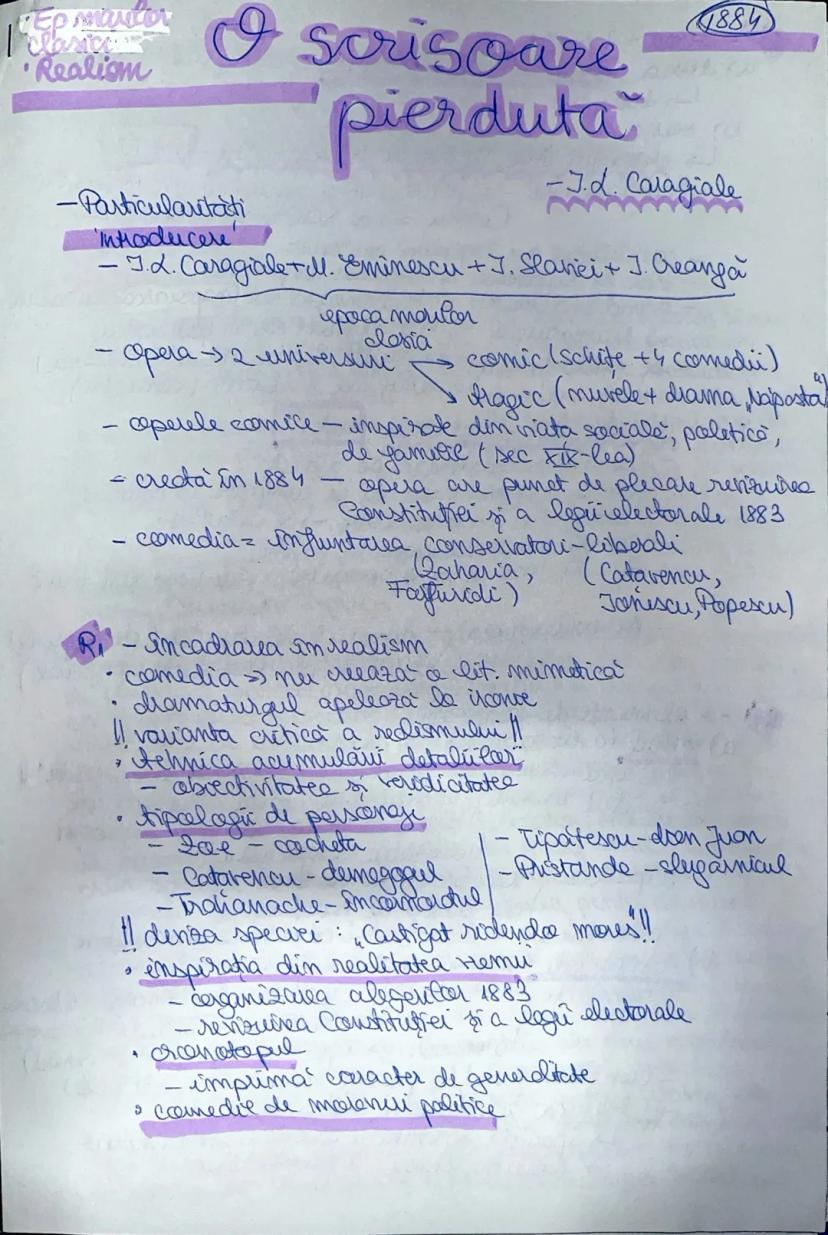 Ep. marilor
clasici
• Realism
1884
O scrisoare
pierdută
- I.L. Caragiale
- Particularități
introducere
- I.L. Caragiale + M. Eminescu + I. Slavici + I. Creangă
epoca marilor
clasici
- opera → 2 universuri → comic (schițe + 4 comedii)
→ tragic (nuvele + drama „Năpasta")
- operele comice - inspirate din viața socială, politică,
de familie (sec XIX-lea)
= creată în 1884 - opera are punct de plecare revizuirea
Constituției și a legii electorale 1883
- comedia = înfruntarea conservatori-liberali
(Zaharia, (Catavencu,
Farfuridi) Ionescu, Popescu)
R₁ - încadrarea în realism
• comedia => nu creează o lit. mimetică
• dramaturgul apelează la ironie
!! varianta critică a realismului !!
• tehnica acumulării detaliilor
- obiectivitatea și veridicitatea
• tipologii de personaje
- Zoe - cocheta
- Catavencu - demagogul
- Trahanache - încornoratul
- Tipătescu - don Juan
- Pristanda - slugarnicul
!! deviza speciei : „Castigat ridendo mores" !!
• inspirația din realitatea vremii
- organizarea alegerilor 1883
- revizuirea Constituției și a legii electorale
• cronotopul
- imprimă caracter de generalitate
• comedie de moravuri politice